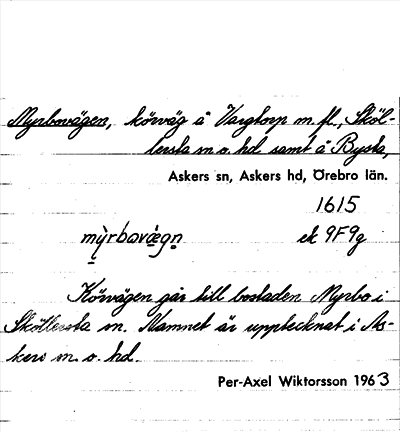 Myrbovägen, körväg å Vargtorp m. fl., Sköl-
lersta sn o. hd samt å Bysta,
Askers sn, Askers hd, Örebro län.
1615
mỳrbovä̀gn ek 9F9g
Körvägen går till bostaden Myrbo i
Sköllersta sn. Namnet är upptecknat i As-
kers sn. o. hd.
Per-Axel Wiktorsson 1963